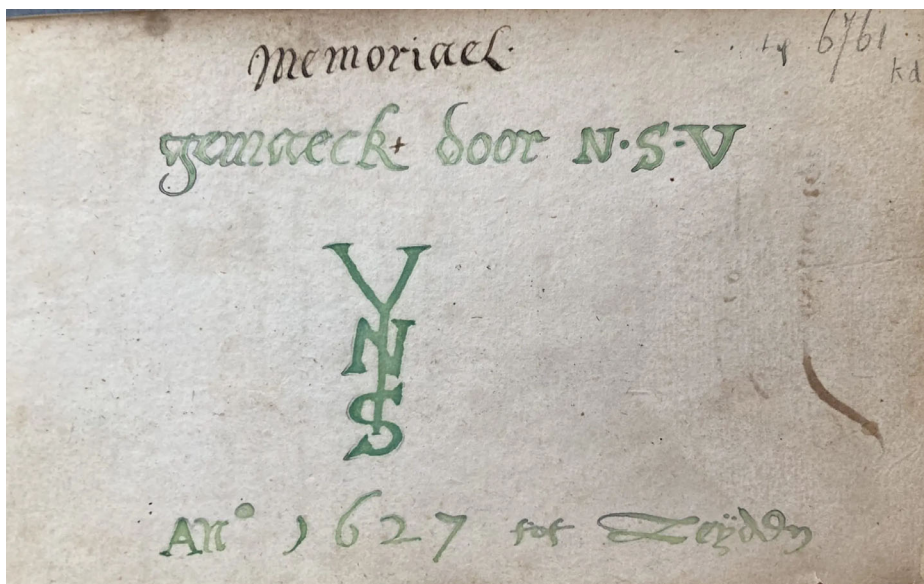 Memoriael·
6761
kd
gemaeckt door N·S·V
V
N
S
An° 1627 tot Leÿden